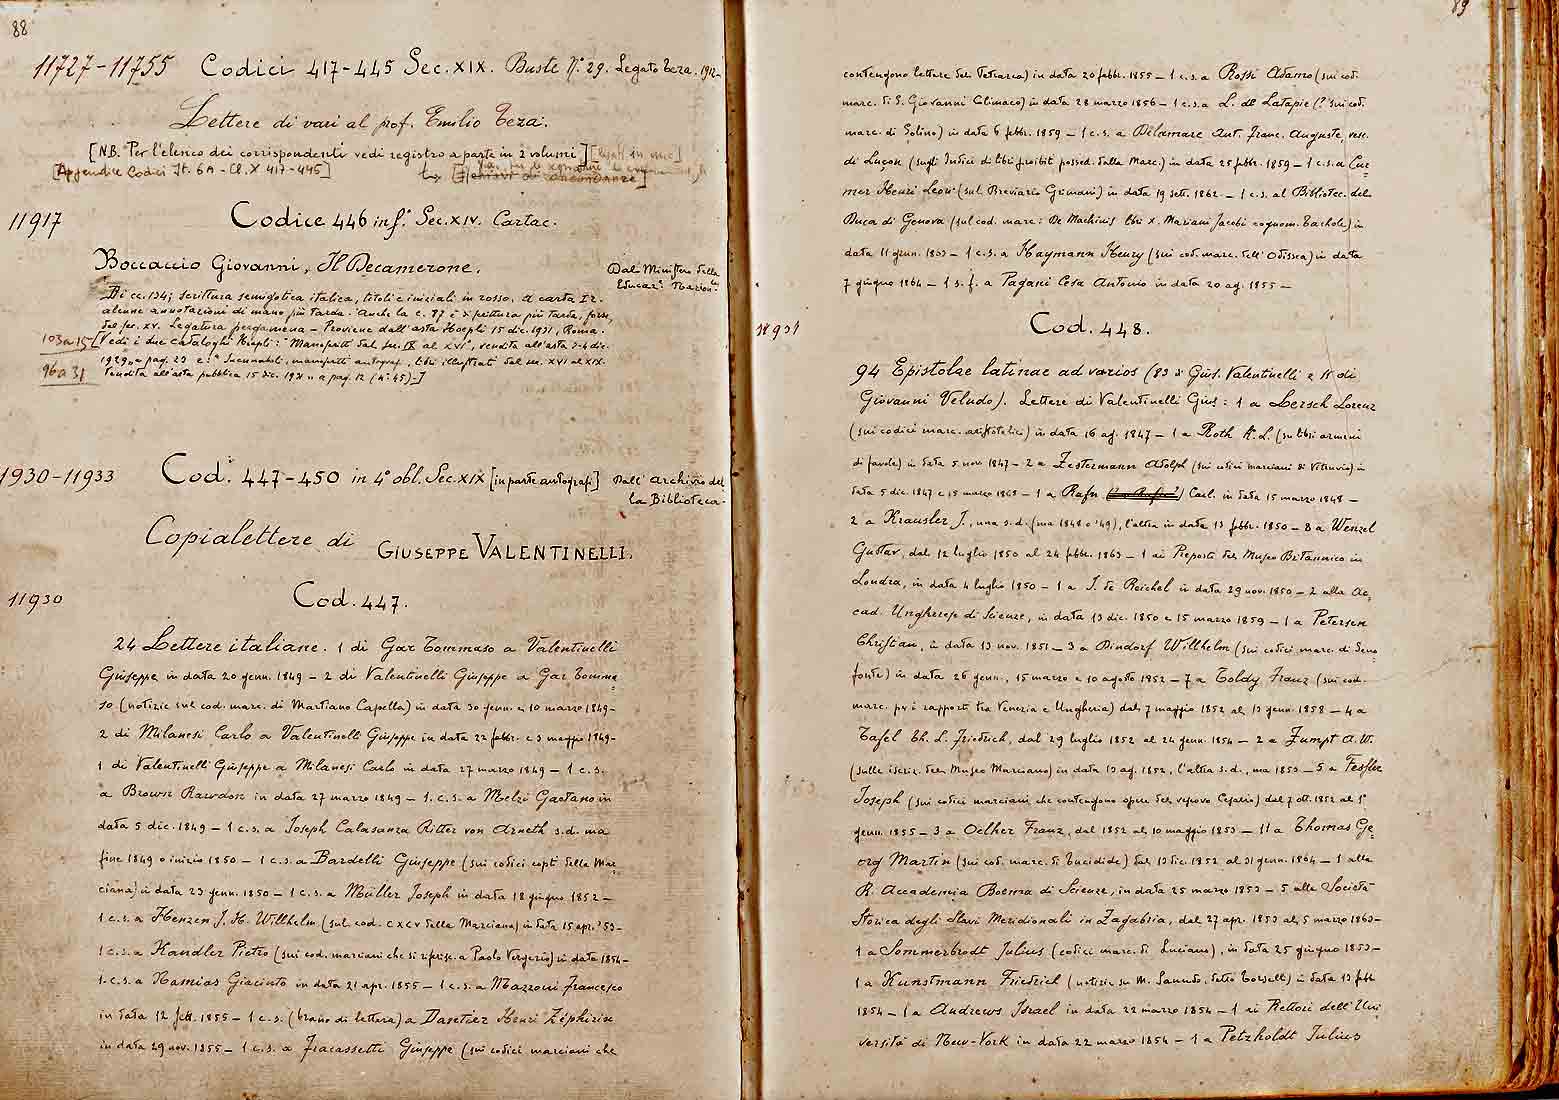 88
11727-11755 Codici 417-445 Sec. XIX. Buste N.° 29. Legato Teza. 1912-
Lettere di vari al prof. Emilio Teza.
[N.B. Per l'elenco dei corrispondenti vedi registro a parte in 2 volumi]
[Appendice Codici It. 6A - Cl. X 417-445]
11917 Codice 446 inf.° Sec. XIV. Cartac.
Boccaccio Giovanni, Il Decamerone.
Dal Ministero della
Educaz.° Nazion.le
Di cc. 134; scrittura semigotica italica, titoli e iniziali in rosso. A carta 12.
alcune annotazioni di mano più tarda. Anche la c. 87 è scrittura più tarda, forse
del sec. XV. Legatura pergamena - Proviene dall'asta Hoepli 15 dic. 1931, Roma.
103 a 15 [Vedi i due cataloghi Hoepli: "Manoscritti dal sec. IX al XVI", vendita all'asta 3-4 dic.
1929 a pag. 29 e: "Incunaboli, manoscritti autografi, libri illustrati dal sec. XVI al XIX.
96 a 31 Vendita all'asta pubblica 15 dic. 1931" a pag. 12 (n.° 45).]
1930-11933 Cod. 447-450 in 4° obl. Sec. XIX [in parte autografi] Dall'archivio del
la Biblioteca.
Copialettere di GIUSEPPE VALENTINELLI.
11930 Cod. 447.
24 Lettere italiane. 1 di Gar Tommaso a Valentinelli
Giuseppe in data 20 genn. 1849 - 2 di Valentinelli Giuseppe a Gar Tomma=
so (notizie sul cod. marc. di Martiano Capella) in data 30 genn. e 10 marzo 1849-
2 di Milanesi Carlo a Valentinelli Giuseppe in data 22 febbr. e 3 maggio 1849-
1 di Valentinelli Giuseppe a Milanesi Carlo in data 27 marzo 1849 - 1 c.s.
a Brown Rawdon in data 27 marzo 1849 - 1. c.s. a Melzi Gaetano in
data 5 dic. 1849 - 1 c.s. a Joseph Calasanza Ritter von Arneth s.d. ma
fine 1849 o inizio 1850 - 1 c.s. a Bardelli Giuseppe (sui codici copti della Mar
ciana) in data 23 genn. 1850 - 1 c.s. a Müller Joseph in data 18 giugno 1852 -
1 c.s. a Henzen J. H. Willhelm (sul cod. CXCV della Marciana) in data 15 apr. '53-
1 c.s. a Kandler Pietro (sui cod. marciani che si riferisc. a Paolo Vergerio) in data 1854-
1. c.s. a Namias Giacinto in data 21 apr. 1855 - 1 c.s. a Mazzoni Francesco
in data 12 febb. 1855 - 1 c.s. (brano di lettera) a Dantier Henri Zéphirin
in data 29 nov. 1855 - 1 c.s. a Fracassetti Giuseppe (sui codici marciani che
89
contengono lettere del Petrarca) in data 20 febbr. 1855 - 1 c.s. a Rossi Adamo (sui cod.
marc. di S. Giovanni Climaco) in data 28 marzo 1856 - 1 c.s. a L. de Latapie (? sui cod.
marc. di Solino) in data 6 febbr. 1859 - 1 c.s. a Delamare Ant. Franc. Auguste, vesc.
di Luçon (sugli Indici di libri proibiti possed. dalla Marc.) in data 25 febbr. 1859 - 1 c.s. a Cur
mer Henri Leon (sul Breviario Grimani) in data 19 sett. 1862 - 1 c.s. al Bibliotec. del
Duca di Genova (sul cod. marc: De Machinis libri X. Mariani Jacobi cognom. Tachole) in
data 11 genn. 1863 - 1 c.s. a Haymann Henry (sui cod. marc. dell'Odissea) in data
7 giugno 1864 - 1 s.f. a Pagani Cesa Antonio in data 20 ag. 1855 -
11931 Cod. 448.
94 Epistolae latinae ad varios (83 di Gius. Valentinelli e 11 di
Giovanni Veludo). Lettere di Valentinelli Gius: 1 a Lersch Lorenz
(sui codici marc. aristotelici) in data 16 ag. 1847 - 1 a Roth K. L. (su libri armeni
di favole) in data 5 nov 1847 - 2 a Zestermann Adolph (sui codici marciani di Vitruvio) in
data 5 dic. 1847 e 15 marzo 1863 - 1 a Rafn Carl. in data 15 marzo 1848 -
2 a Krausler J., una s.d. (ma 1848 o '49), l'altra in data 13 febbr. 1850 - 8 a Wenzel
Gustav, dal 12 luglio 1850 al 24 febbr. 1863 - 1 ai Preposti del Museo Britannico in
Londra, in data 4 luglio 1850 - 1 a J. de Reichel in data 29 nov. 1850 - 2 alla Ac=
cad. Ungherese di Scienze, in data 13 dic. 1850 e 15 marzo 1859 - 1 a Petersen
Christian, in data 13 nov. 1851 - 3 a Dindorf Willhelm (sui codici marc. di Seno=
fonte) in data 26 genn., 15 marzo e 10 agosto 1852 - 7 a Toldy Franz (sui cod.
marc. per i rapporti tra Venezia e Ungheria) dal 7 maggio 1852 al 13 genn. 1858 - 4 a
Tafel Th. L. Friedrich, dal 29 luglio 1852 al 24 genn. 1854 - 2 a Zumpt A. W.
(sulle iscriz. del Museo Marciano) in data 13 ag. 1852, l'altra s.d., ma 1853 - 5 a Fessler
Joseph (sui codici marciani che contengono opere del vescovo Cesario) dal 7 ott. 1852 al 1°
genn. 1855 - 3 a Oelher Franz, dal 1852 al 10 maggio 1853 - 11 a Thomas Ge=
org Martin (sui cod. marc. di Tucidide) dal 13 dic. 1852 al 31 genn. 1864 - 1 alla
R. Accademia Boema di Scienze, in data 25 marzo 1853 - 5 alla Società
Storica degli Slavi Meridionali in Zagabria, dal 27 apr. 1853 al 5 marzo 1863-
1 a Sommerbrodt Julius (codici marc. di Luciano), in data 25 giugno 1853-
1 a Kunstmann Friedrich (notizie su M. Sanudo, detto Torselli) in data 13 febb
1854 - 1 a Andrews Israel in data 22 marzo 1854 - 1 ai Rettori dell'Uni
versità di New-York in data 22 marzo 1854 - 1 a Petzholdt Julius